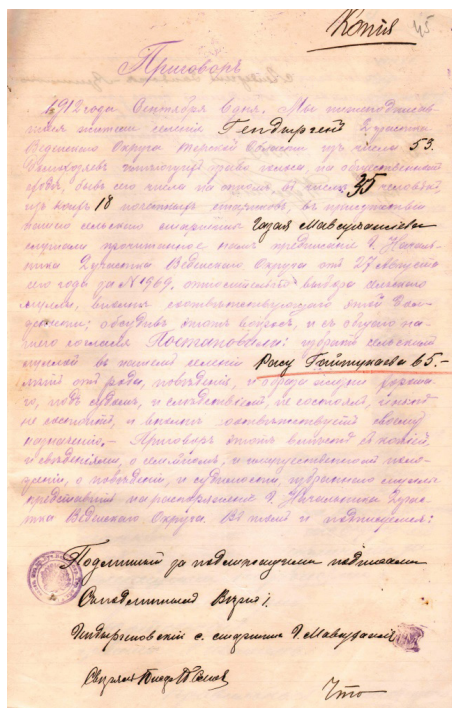 Копія 45
Приговоръ
1912 года Сентября 6 дня, Мы нижеподписав-
шіеся жители селенія Гендыргенъ 2 участка
Веденскаго Округа Терской Области изъ числа 53.
домохозяевъ имѣющихъ право голоса, на общественный
сходъ, бывъ сего числа на ономъ, въ числѣ 35 человѣкъ,
изъ коихъ 18 почетныхъ стариковъ, въ присутствіи
нашего сельскаго старшины
слушали прочитанное намъ предписаніе Г. Началь-
ника 2 участка Веденскаго Округа отъ 27 Августа
сего года за № 1969, относительно выбора сельскаго
муллы, вполнѣ соотвѣтствующаго этой дол-
жности; обсудивъ этотъ вопросъ, и съ общаго на-
шего согласія Постановили: избрать сельскимъ
муллой въ нашемъ селеніи Расу Гайтукаева 65.-
лѣтъ отъ рода, поведенія, и образа жизни хороша-
го, подъ судомъ, и слѣдствіемъ, не состоялъ, и
не состоитъ, и вполнѣ соотвѣтствуетъ своему
назначенію,- Приговоръ этотъ вмѣстѣ съ копіей,
и свѣдѣніями, о семейномъ, и имущественномъ поло-
женіи, о поведеніи, и судимости, избраннаго муллы
представить на распоряженіе Г. Начальника 2 учас-
тка Веденскаго Округа. Въ томъ и подписуемся:
Подлинный за надлежащими подписами
Съ подлиннымъ Вѣрно:
с. старшина
Свѣрялъ
Что